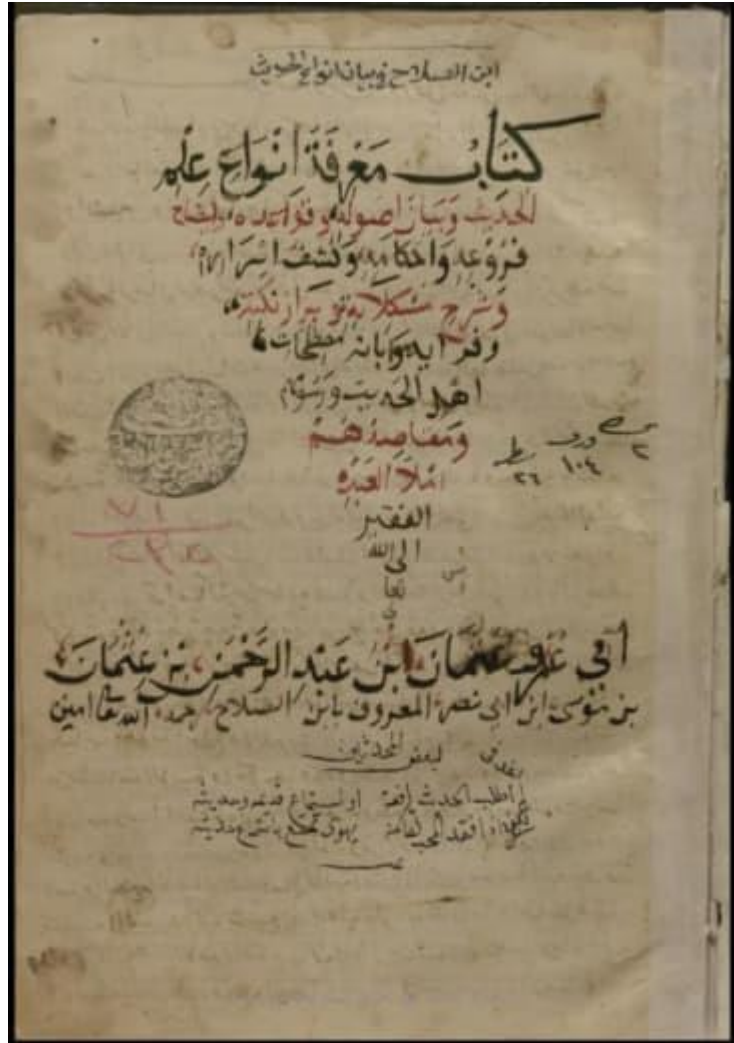 ابن الصلاح في بيان انواع الحديث
كتاب معرفة انواع علم
الحديث وبيان اصوله وقواعده وايضاح
فروعه واحكامه وكشف اسراره
وشرح مشكلاته وابراز نكته
وفرايده وابانة مصطلحات
اهل الحديث ورسوم
ومقاصدهم
املا العبد
الفقير
الى الله
تعا
ابي عمرو عثمان ابن عبد الرحمن بن عثمان
بن موسى ابن ابي نصر المعروف بابن الصلاح رحمه الله تعا امين
لبعض المحدثين
اطلب الحدث او لستماع قديمه وحديثه
اذا فقد المحب يهوى تمتع باستماع حديثه
ورق
١٠٤
سطر
٢٦
١٧